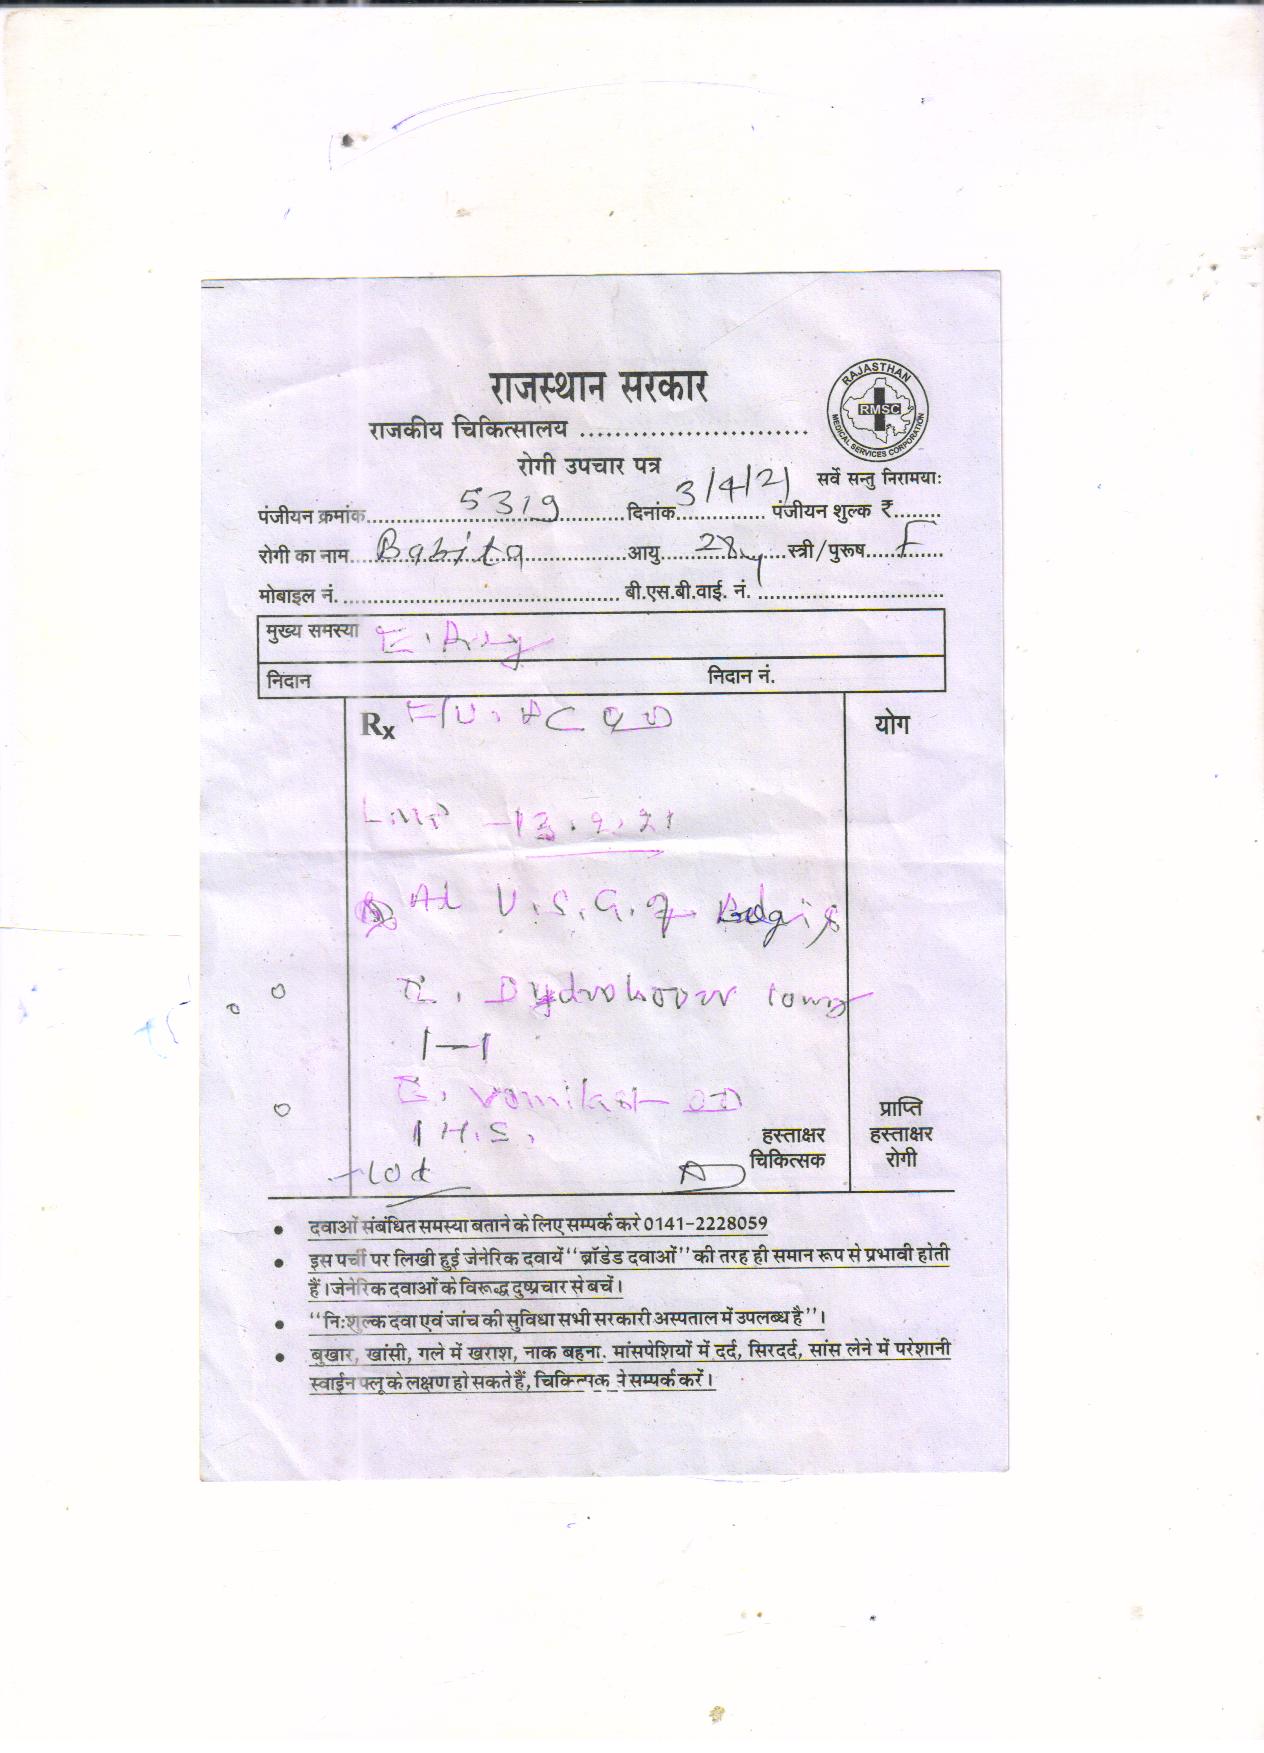 राजस्थान सरकार
RAJASTHAN
RMSC
MEDICAL SERVICES CORPORATION
राजकीय चिकित्सालय ..........................
रोगी उपचार पत्र
सर्वे सन्तु निरामयाः
पंजीयन क्रमांक 5319 दिनांक 3/4/21 पंजीयन शुल्क ₹........
रोगी का नाम Babita आयु 28y स्त्री/पुरूष F
मोबाइल नं. .......... बी.एस.बी.वाई. नं. ..........
मुख्य समस्या E.
निदान निदान नं.
Rx योग
L.M.P - 13.2.21
Ad U.S.G.
T. 10mg
1-1
T. Vomikast OD
1 H.S.
प्राप्ति
हस्ताक्षर हस्ताक्षर
चिकित्सक रोगी
- 10d
• दवाओं संबंधित समस्या बताने के लिए सम्पर्क करे 0141-2228059
• इस पर्ची पर लिखी हुई जेनेरिक दवायें "ब्रॉडेड दवाओं" की तरह ही समान रूप से प्रभावी होती
हैं। जेनेरिक दवाओं के विरूद्ध दुष्प्रचार से बचें।
• "निःशुल्क दवा एवं जांच की सुविधा सभी सरकारी अस्पताल में उपलब्ध है"।
• बुखार, खांसी, गले में खराश, नाक बहना. मांसपेशियों में दर्द, सिरदर्द, सांस लेने में परेशानी
स्वाईन फ्लू के लक्षण हो सकते हैं, चिकित्सक से सम्पर्क करें।